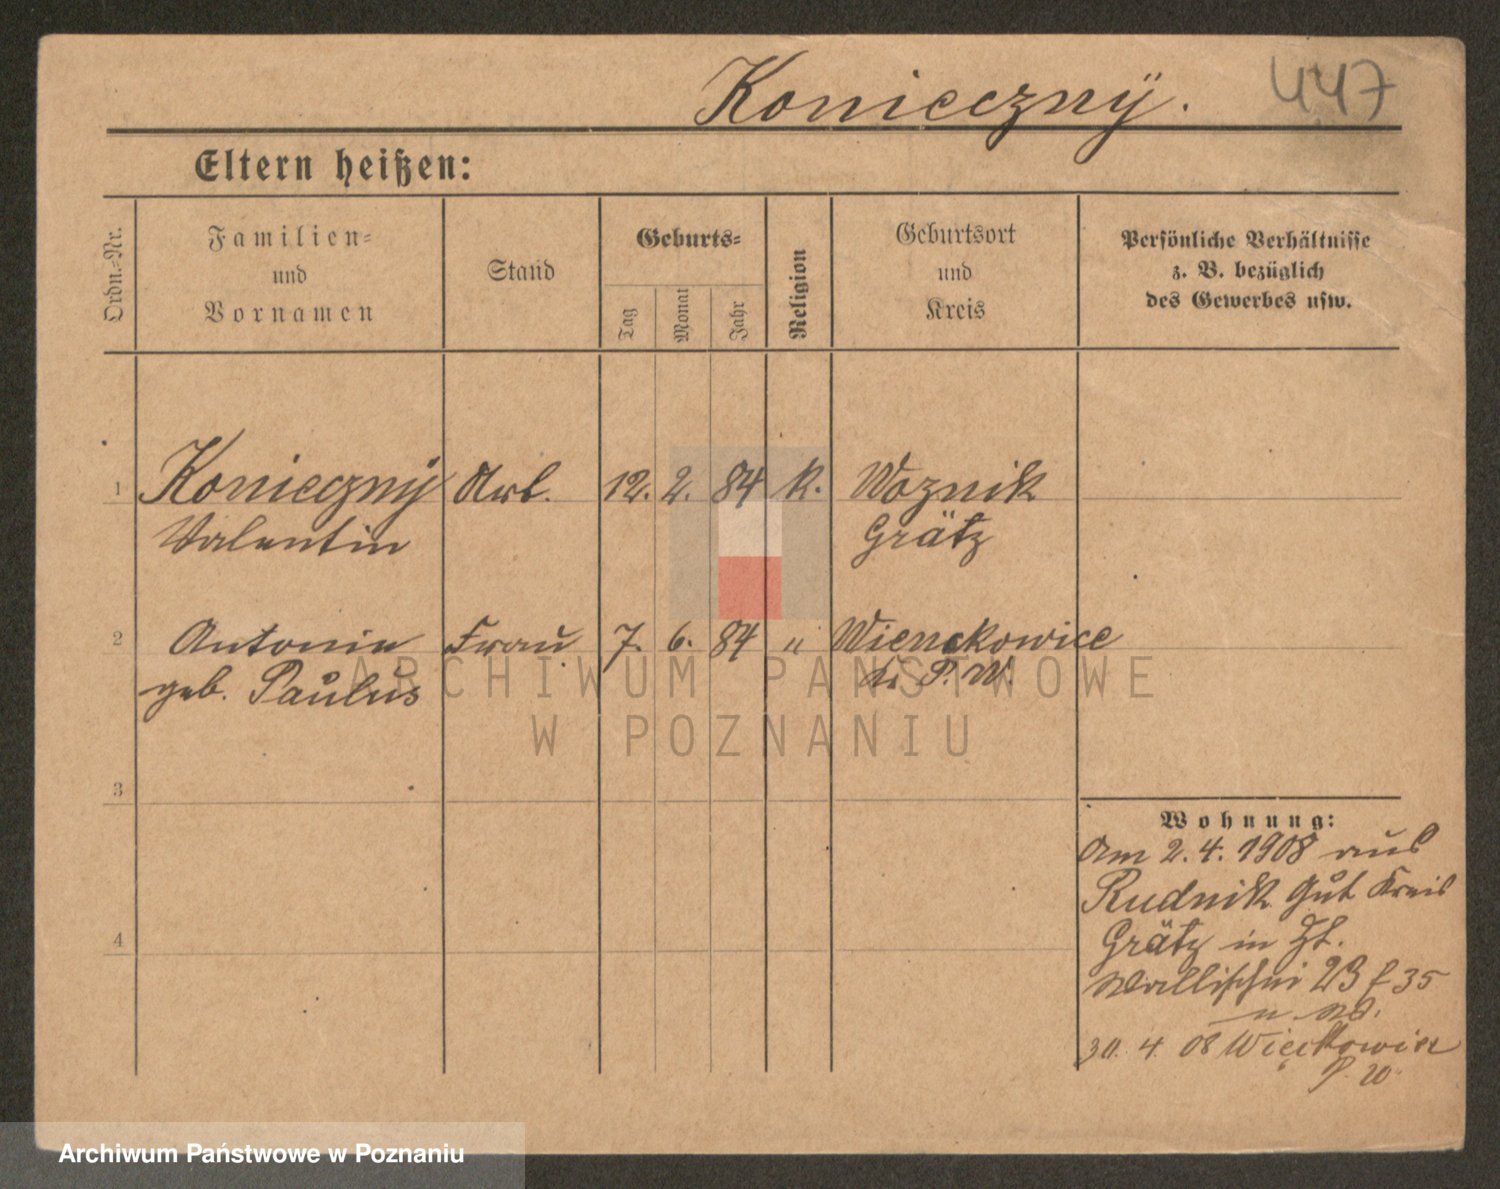 Konieczny.
447
Eltern heißen:
Ordn.-Nr.
Familien-
und
Vornamen
Stand
Geburts-
Tag
Monat
Jahr
Religion
Geburtsort
und
Kreis
Persönliche Verhältnisse
z. B. bezüglich
des Gewerbes usw.
1 Konieczny Arb. 12. 2. 84 k. Woznik
Valentin Grätz
2 Antonie Frau 7. 6. 84 " Wienckowice
geb. Paulus P. W.
ARCHIWUM PAŃSTWOWE
W POZNANIU
3
4
Wohnung:
Am 2. 4. 1908 aus
Rudnik Gut Kreis
Grätz in
Wallischei 23 35
30. 4. 08 Więckowice
P. W.
Archiwum Państwowe w Poznaniu